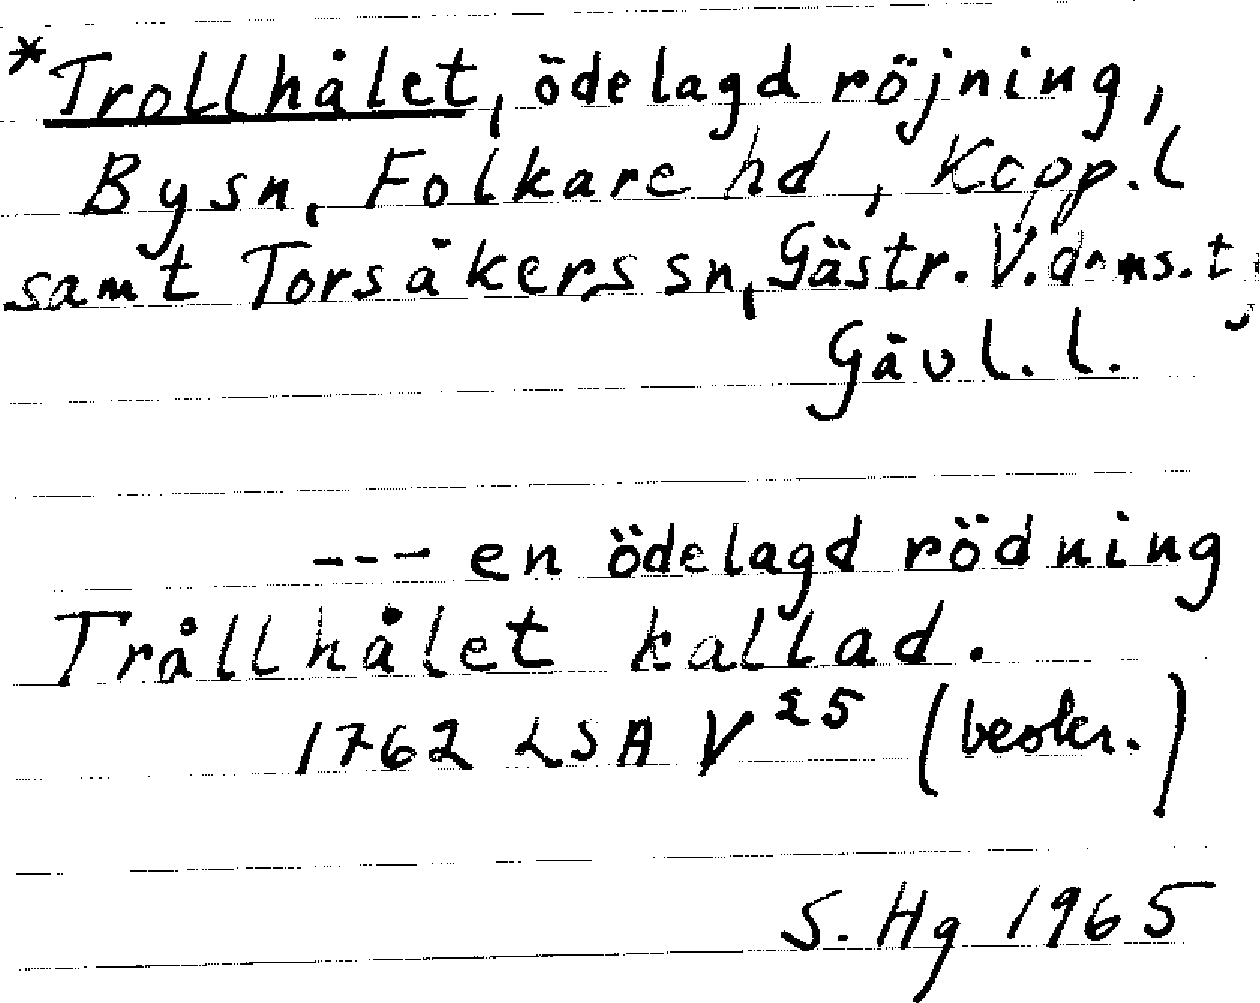 *Trollhålet, ödelagd röjning,
By sn, Folkare hd, Kopp.l
samt Torsåkers sn, Gästr. V. doms.t,
Gävl. l.
--- en ödelagd rödning
Trållhålet kallad.
1762 LSA V25 (beskr.)
S. Hg 1965